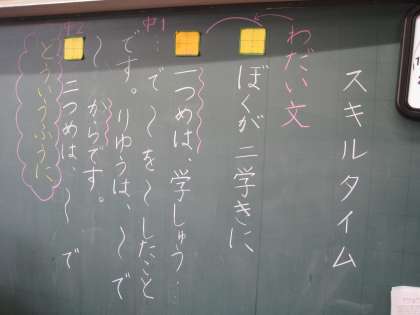 スキルタイム
わだい文
ぼくが二学きに
中1
一つめは、学しゅう…
…で〜を〜したこと
です。りゆうは、〜で
〜からです。
中2
二つめは、〜で
どういうふうに、